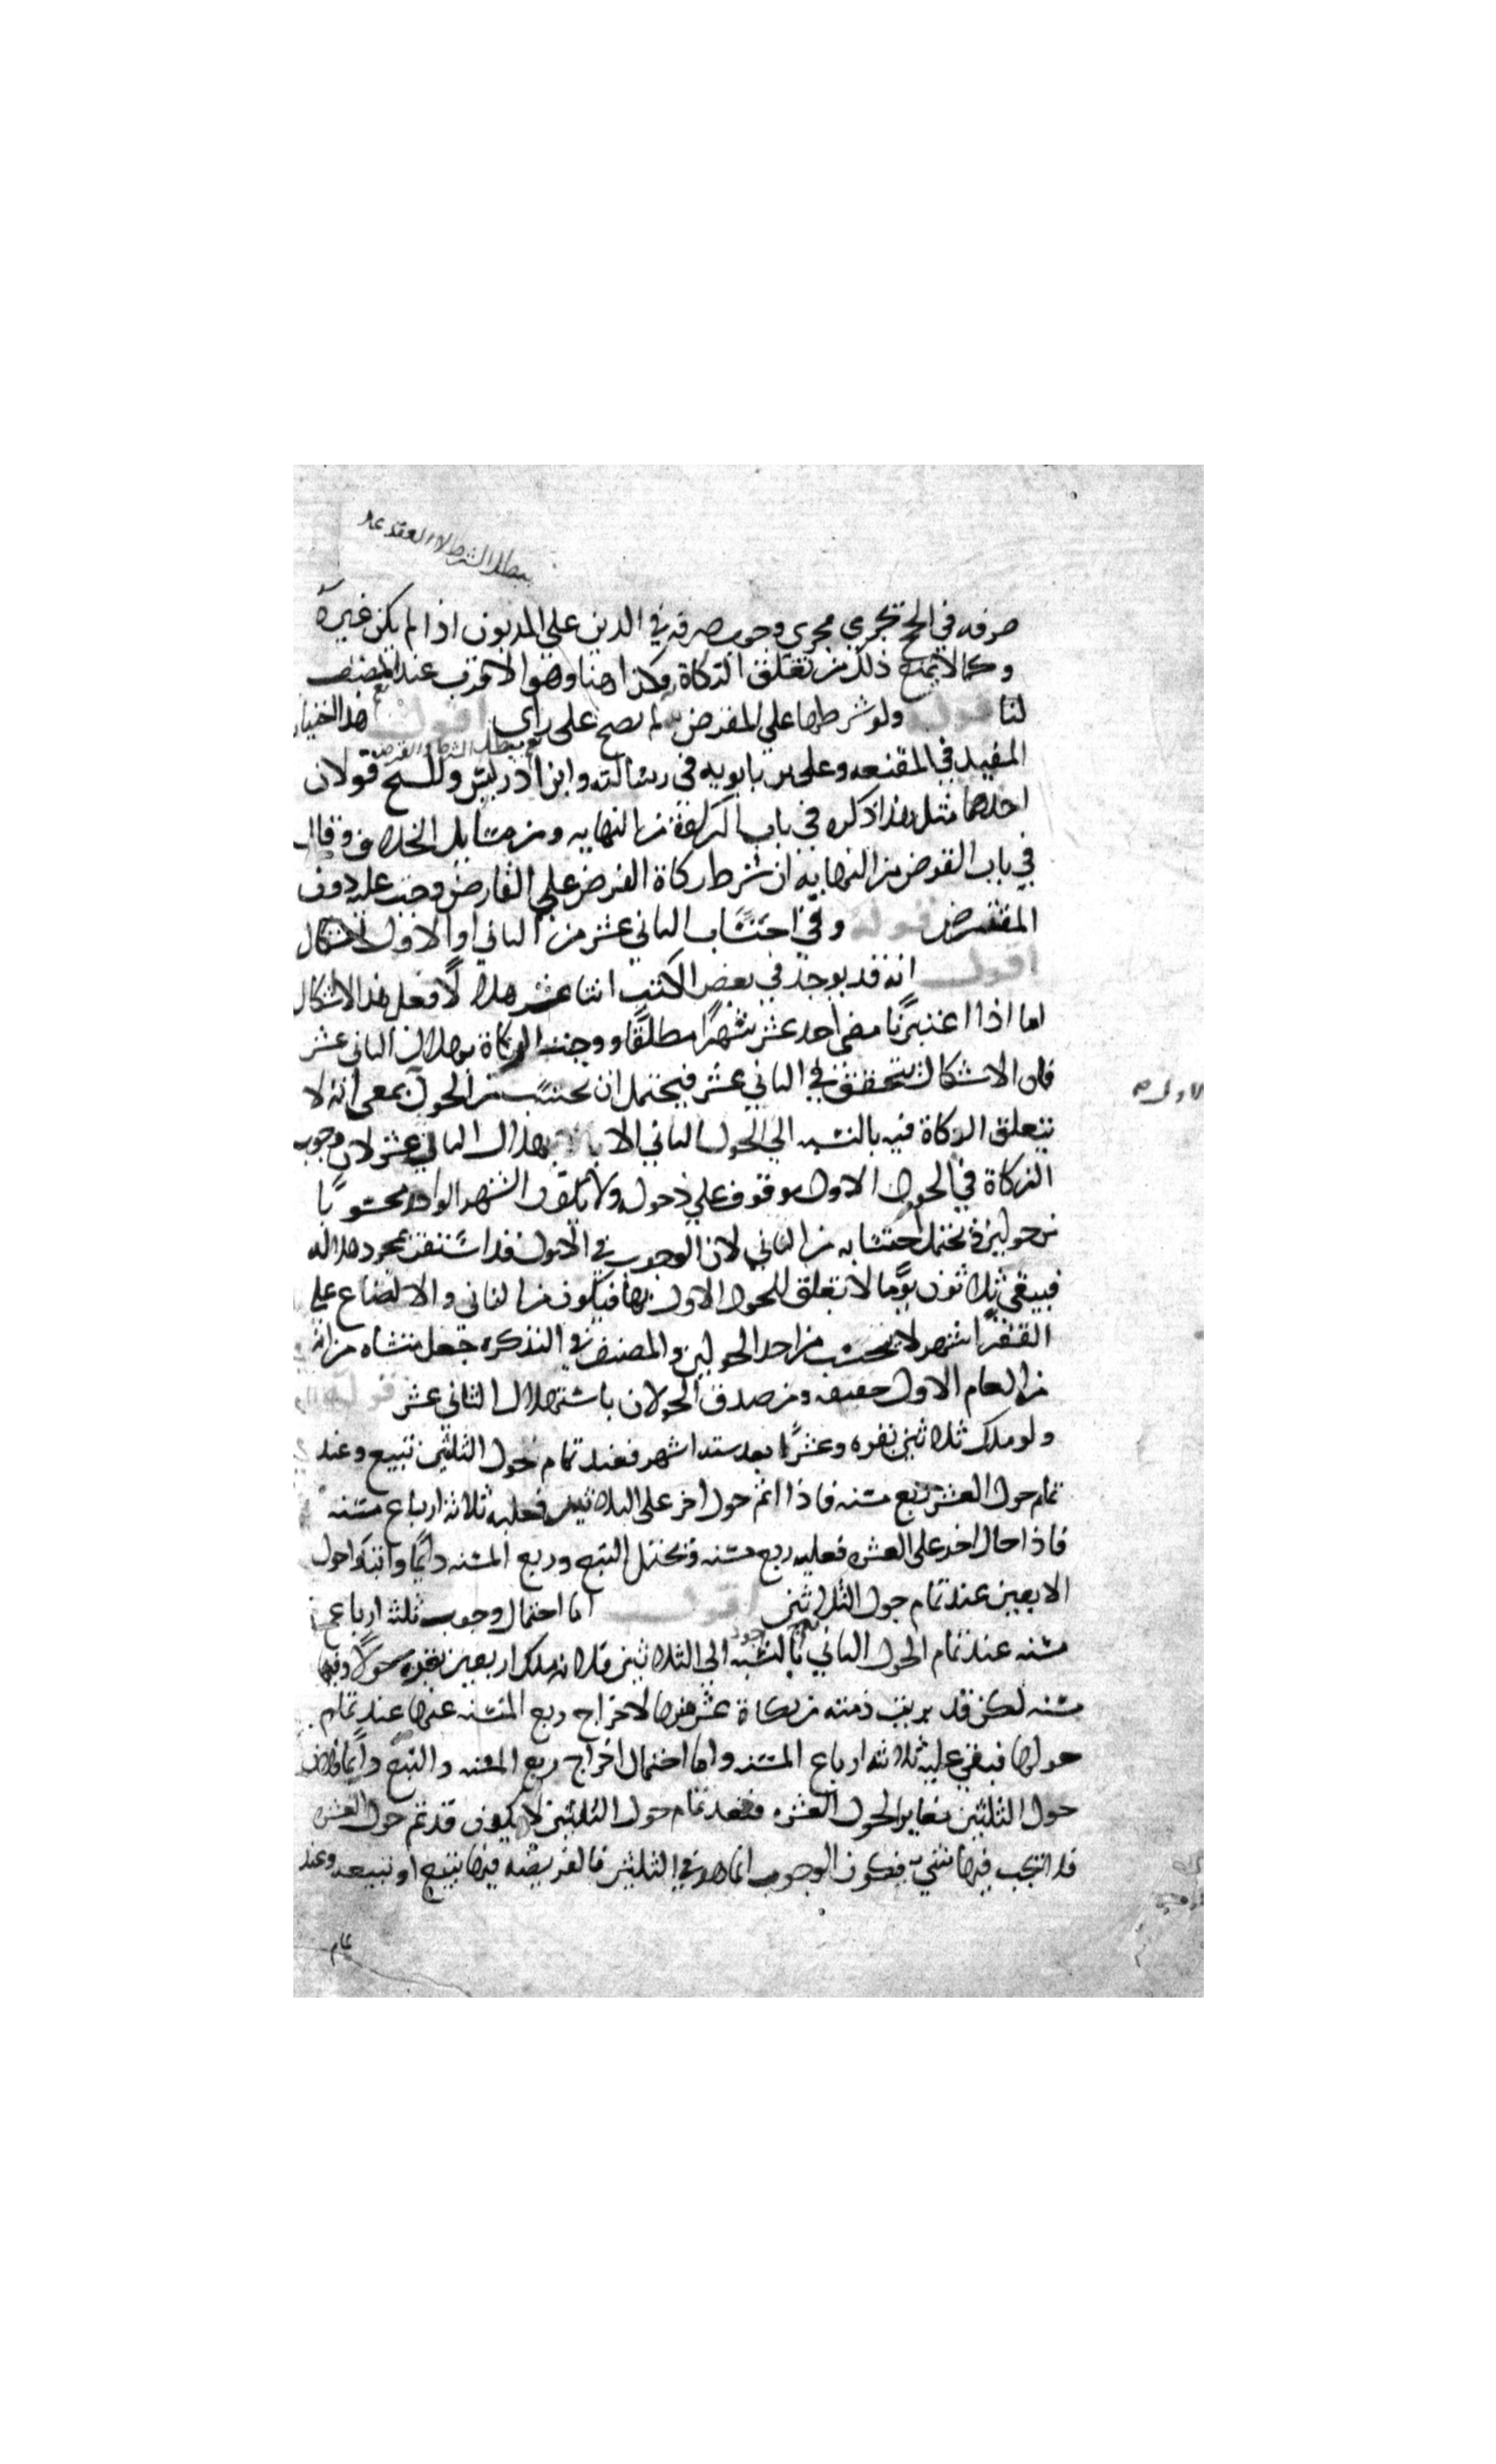 يبطل الشرط لا العقد
صرفه في الحج تجري مجرى وجوب صرفه في الدين على المديون اذا لم يكن غيره
وكما لا يمنع ذلك من تعلق الزكاة وكذا هنا وهو الاقرب عند المصنف
لنا قوله ولو شرطها على المقرض لم يصح على راى اقول هذا اختيار
المفيد في المقنعه وعلى بن بابويه في رسالته وابن ادريس وللشيخ قولان
احدهما مثل هذا ذكره في باب الزكاة من النهايه ومن مسايل الخلاف وقال
في باب القرض من النهايه ان شرط زكاة القرض على القارض وجبت عليه دون
المقترض قوله وفي احتساب الثاني عشر من الثاني او الاول اشكال
اقول انه قد يوجد في بعض الكتب اثنا عشر هلالًا فعل هذا لا اشكال
اما اذا اعتبرنا مضى احد عشر شهرًا مطلقًا ووجبت الزكاة بهلال الثاني عشر
فان الاشكال يتحقق في الثاني عشر فيحتمل ان يحتسب من الحول بمعنى انه لا
الاول صح
تتعلق الزكاة فيه بالنسبه الى الحول الثاني الا بهذا الثاني عشر لان وجوب
الزكاة في الحول الاول موقوف على دخوله ولا يكون الشهر الواحد محسوبًا
من حولين ويحتمل احتسابه من الثاني لان الوجوب في الاول قد استقر بمجرد هلاله
فيبقى ثلاثون يومًا لا تعلق للحول الاول بها فيكون من الثاني والا لضاع على
الفقرا شهر لا يحتسب من احد الحولين والمصنف في التذكره جعل منشاه من انه
من العام الاول حقيقه ومن صدق الحولان باستهلال الثاني عشر قوله
ولو ملك ثلاثين بقره وعشرًا بعد سته اشهر فعند تمام حول الثلثين تبيع وعند
تمام حول العشر ربع مسنه فاذا اتم حول اخر على الثلاثين فعليه ثلاثة ارباع مسنه
فاذا حال اخر على العشر فعليه ربع مسنه ويحتمل التبيع وربع المسنه دائمًا وابتداء حول
الاربعين عند تمام حول الثلاثين اقول اما احتمال وجوب ثلثة ارباع
مسنه عند تمام الحول الثاني بالنسبه الى الثلاثين فلانه ملك اربعين بقره حولًا وفيها
مسنه لكن قد بريت ذمته من زكاة عشر منها لاخراج ربع المسنه عنها عند تمام
حولها فبقى عليه ثلاثة ارباع المسنه واما احتمال اخراج ربع المسنه والتبيع دائمًا فلان
حول الثلثين مغاير لحول العشره فعند تمام حول الثلثين لا يكون قد تم حول العشر
فلا تجب فيها شيء فيكون الوجوب انما هو في الثلثين فالفريضه فيها تبيع او تبيعه وعند
تمام